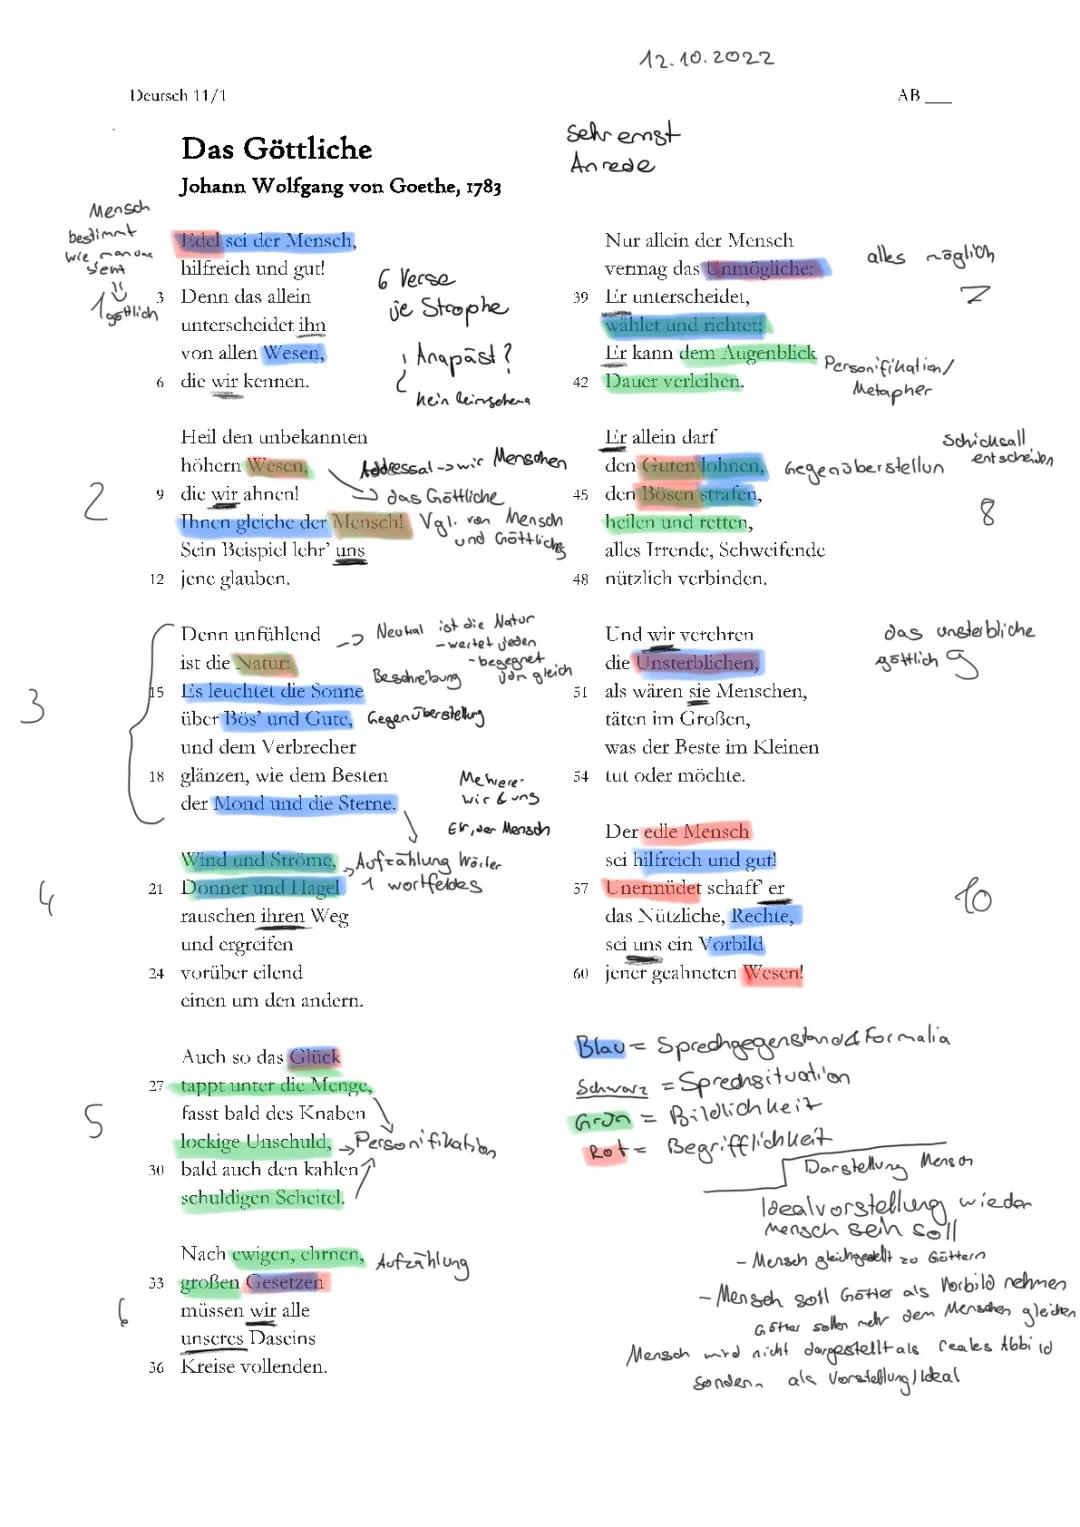 12.10.2022
Deutsch 11/1
AB ___
Das Göttliche
Johann Wolfgang von Goethe, 1783
sehr ernst
Anrede
Mensch
bestimmt
wie man
sieht
1 göttlich
Edel sei der Mensch,
hilfreich und gut!
3 Denn das allein
unterscheidet ihn
von allen Wesen,
6 die wir kennen.
6 Verse
je Strophe
Anapäst?
kein Reimschema
Heil den unbekannten
höhern Wesen,
9 die wir ahnen!
Ihnen gleiche der Mensch!
Sein Beispiel lehr' uns
12 jene glauben.
2
Addressat -> wir Menschen
-> das Göttliche
Vgl. von Mensch
und Göttliches
Denn unfühlend
ist die Natur:
15 Es leuchtet die Sonne
über Bös' und Gute,
und dem Verbrecher
18 glänzen, wie dem Besten
der Mond und die Sterne.
3
-> Neutral ist die Natur
- wertet jeden
- begegnet
Beschreibung
von gleich
Gegenüberstellung
Mehrere-
wir & uns
Er, der Mensch
Wind und Ströme,
21 Donner und Hagel
rauschen ihren Weg
und ergreifen
24 vorüber eilend
einen um den andern.
4
-> Aufzählung Wörter
1 wortfeldes
Auch so das Glück
27 tappt unter die Menge,
fasst bald des Knaben
lockige Unschuld,
30 bald auch den kahlen
schuldigen Scheitel.
5
-> Personifikation
Nach ewigen, ehrnen,
33 großen Gesetzen
müssen wir alle
unseres Daseins
36 Kreise vollenden.
6
Aufzählung
Nur allein der Mensch
vermag das Unmögliche:
39 Er unterscheidet,
wählet und richtet;
Er kann dem Augenblick
42 Dauer verleihen.
alles möglich
7
Personifikation/
Metapher
Er allein darf
den Guten lohnen,
45 den Bösen strafen,
heilen und retten,
alles Irrende, Schweifende
48 nützlich verbinden.
Gegenüberstellun
Schicksall
entscheiden
8
Und wir verehren
die Unsterblichen,
51 als wären sie Menschen,
täten im Großen,
was der Beste im Kleinen
54 tut oder möchte.
das unsterbliche
göttlich 9
Der edle Mensch
sei hilfreich und gut!
57 Unermüdet schaff' er
das Nützliche, Rechte,
sei uns ein Vorbild
60 jener geahneten Wesen!
10
Blau = Sprechgegenstand & Formalia
Schwarz = Sprechsituation
Grün = Bildlichkeit
Rot = Begrifflichkeit
Darstellung Mensch
Idealvorstellung wie der
mensch sein soll
- Mensch gleichgestellt zu Göttern
- Mensch soll Götter als Vorbild nehmen
Götter sollen mehr dem Menschen gleichen
Mensch wird nicht dargestellt als reales Abbild
sondern als Vorstellung/Ideal